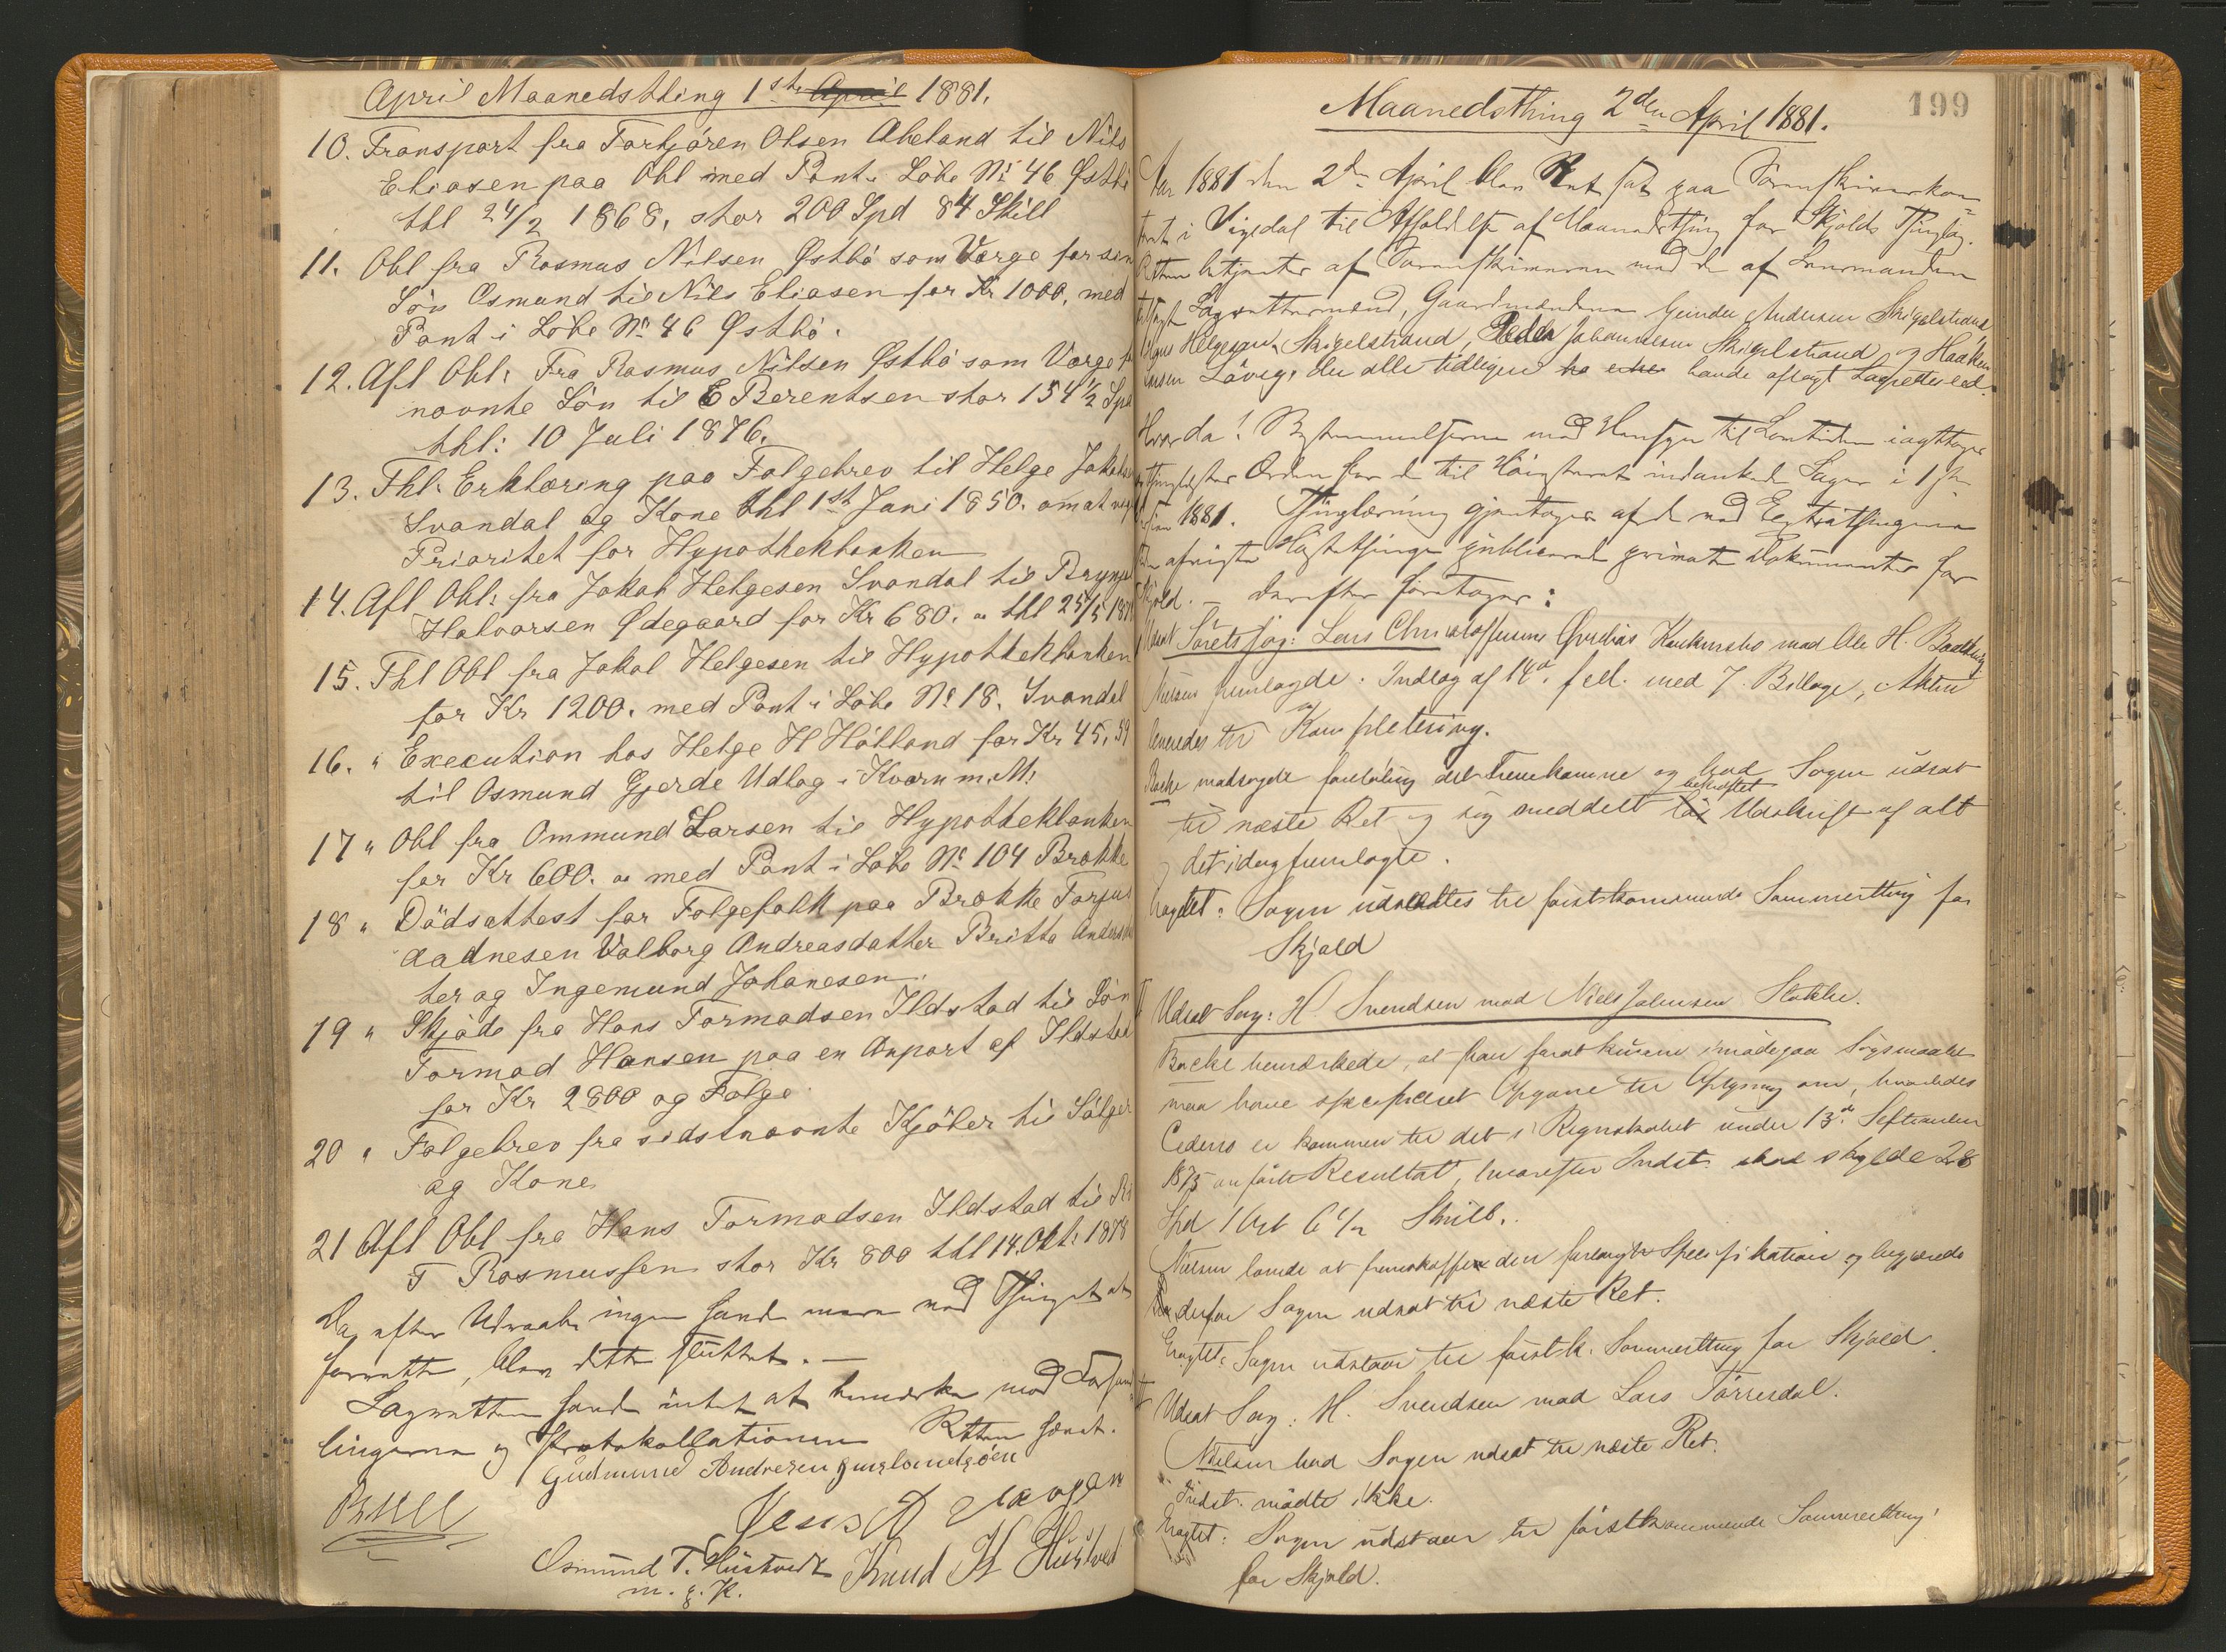 April Maanedsthing 1ste April 1881.
10. Transport fra Torbjören Olsen Abeland til Nils
Eliasen paa Obl med Pant i Löbe No 46 Østbö
thl 24/2 1868, stor 200 Spd 84 Skill
11. Obl fra Rasmus Nilsen Østbö som Værge for sin
Sön Osmund til Nils Eliasen for Kr 1000, med
Pant i Löbe No 46 Østbö.
12. Afl Obl: Fra Rasmus Nilsen Østbö som Værge for
nævnte Sön til E Berentsen stor 154 1/2 Spd
thl: 10 Juli 1876.
13. Thl: Erklæring paa Folgebrev til Helge Jakobs
Svandal og Kone thl 1st Juni 1850. om at vige
Prioritet for Hypothekbanken
14. Afl Obl: fra Jakob Helgesen Svandal til Brynjel
Halvorsen Ødegaard for Kr 680. " thl 25/5 18
15. Thl Obl fra Jakob Helgesen til Hypothekbanken
for Kr 1200. med Pant i Löbe No 18. Svandal
16. " Execution hos Helge H Hölland for Kr 45,59
til Osmund Gjerde Udlæg i Kværn m. M:
17 " Obl fra Ommund Larsen til Hypothekbanken
for Kr 600. " med Pant i Löbe No 104 Brække
18 " Dödsattest for Folgefolk paa Brække Torjus
Aadnesen Valborg Andreasdatter Britta Andersdat
ter og Ingemund Johanesen.
19 " Skjöde fra Hans Tormodsen Ildstad til Sön
Tormod Hansen paa en Anpart af Ildstad
for Kr 2800 og Folge
20 " Folgebrev fra sidstnævnte Kjöber til Sælger
og Kone
21 Afl Obl fra Hans Tormodsen Ildstad til
T Rasmussen stor Kr 800 thl 14. Okt: 1878
Da efter Udraab ingen fandtes mere ved Thinget at
forrette, blev dette sluttet. —
Lagretten fandt intet at bemærke mod
lingerne og Protokollationen Retten hævet.
Gudmund Andresen
Osmund T. Hustvedt Knud K Hustvedt
m. f. P.
Maanedsthing 2den April 1881.
199
Aar 1881 den 2den April blev Ret sat paa Sorenskriverkon=
toret i Vigedal til Afholdelse af Maanedsthing for Skjolds Thinglag.
Retten betjentes af Sorenskriveren med de af Lensmanden
tilsagte Lagrettemænd, Gaardmændene Andersen Skigelstrand
Helgesen Skigelstrand, Peder Johannesen Skigelstrand og Haakon
Larsen Lövig, der alle tidligere har havde aflagt Lagretteed.
Hvorda! Bestemmelserne med Hensyn til Læsetiden iagttoges
Orden for de til Høiesteret indankede Sager i 1ste
Session 1881. Thinglæsning gjentoges af de ved Extrathingene
siden afvigte Høstething publicerede private Dokumenter for
Skjold. — Derefter foretoges:
Udsat Søretssag: Lars Christoffersens Konkursbo mod Ole H.
Nielsen fremlagde: Indlæg af 14de. feb. med 7 Bilage, Akten
leveredes til Kompletering.
Bache modsagde foreløbig det Fremkomne og bad Sagen udsat
til næste Ret og sig meddelt bekræftet Udskrift af alt
det idag fremlagte.
Eragtet: Sagen udsættes til førstkommende Sommerthing for
Skjold
Udsat Sag: H Svendsen mod Niels Johnsen Stakke.
Bache bemærkede, at han forat kunne imødegaa Søgsmaalet
maa have specificeret Opgave til Oplysning om, hvorledes
Cedens er kommen til det i Regnskabet under 13de September
1875 anførte Resultat, hvorefter Indst. skal skylde 28
Spd 1 Ort 6 1/2 Skill.
Nielsen lovede at fremskaffe den forlangte Specifikation og begjærede
derfor Sagen udsat til næste Ret.
Eragtet: Sagen udstaar til førstk. Sommerthing for Skjold.
Udsat Sag: H. Svendsen mod Lars Tørresdal.
Nielsen bad Sagen udsat til næste Ret.
Indst. mødte ikke.
Eragtet: Sagen udstaar til førstkommende Sommerthing
for Skjold.